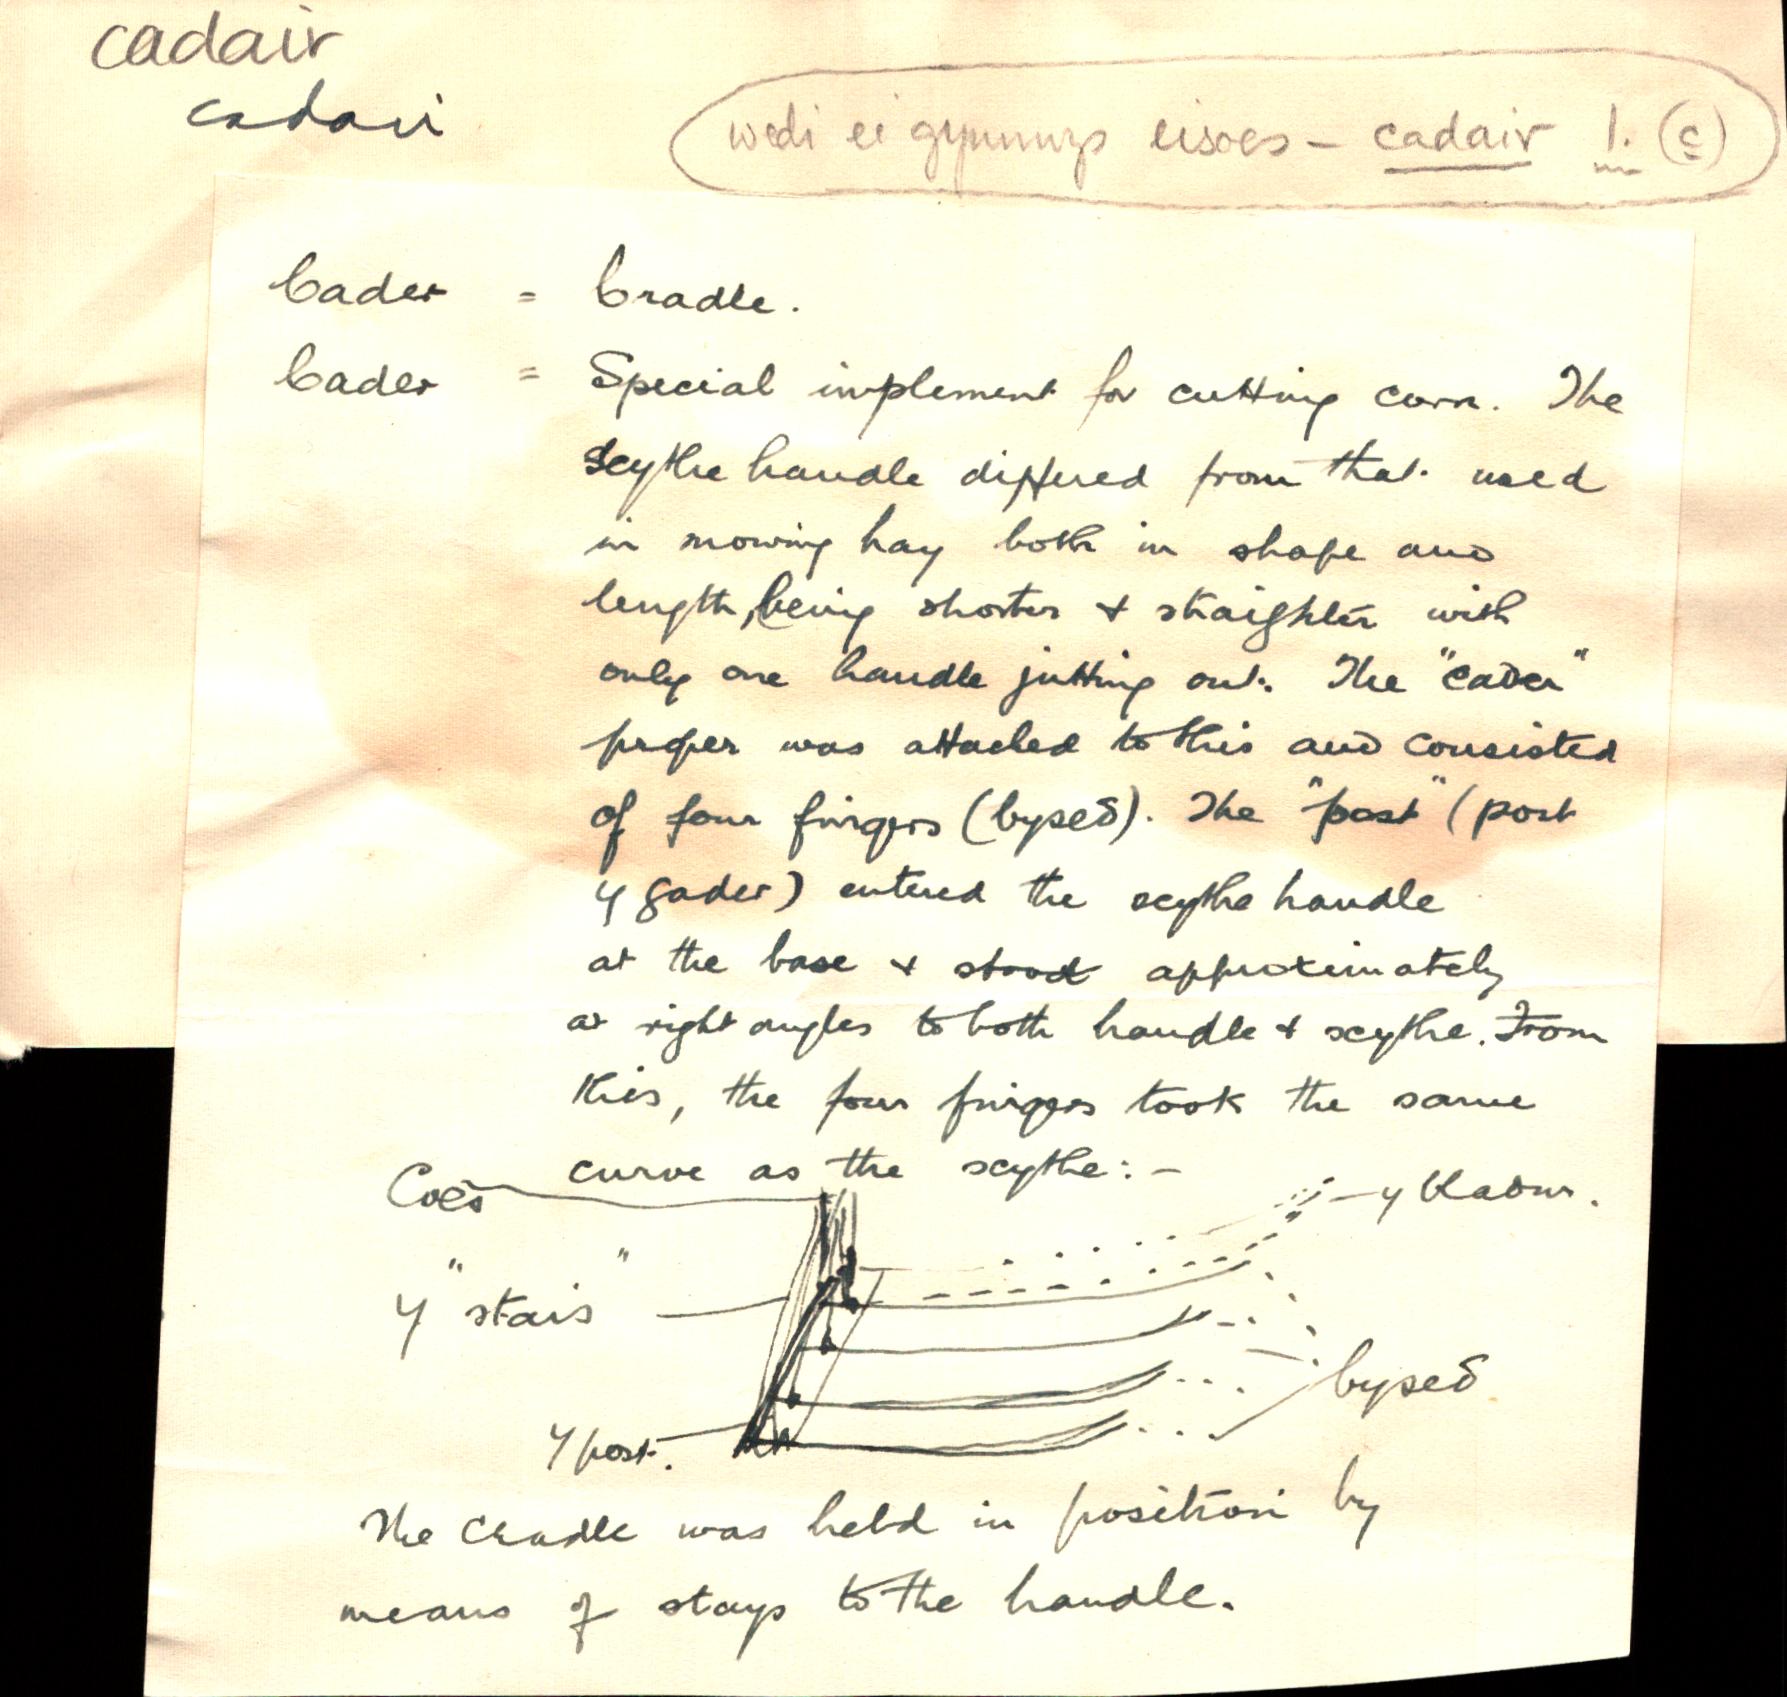 cadair
cadair
wedi ei gynnwys eisoes – cadair 1. (c)
Cader = Cradle.
Cader = Special implement for cutting corn. The
scythe handle differed from that used
in mowing hay both in shape and
length, being shorter & straighter with
only one handle jutting out. The "cader"
proper was attached to this and consisted
of four fingers (byseδ). The "post" (post
y gader) entered the scythe handle
at the base & stood approximately
at right angles to both handle & scythe. From
this, the four fingers took the same
curve as the scythe: –
Coes
y bladur.
y "stais"
byseδ
y post.
The Cradle was held in position by
means of stays to the handle.